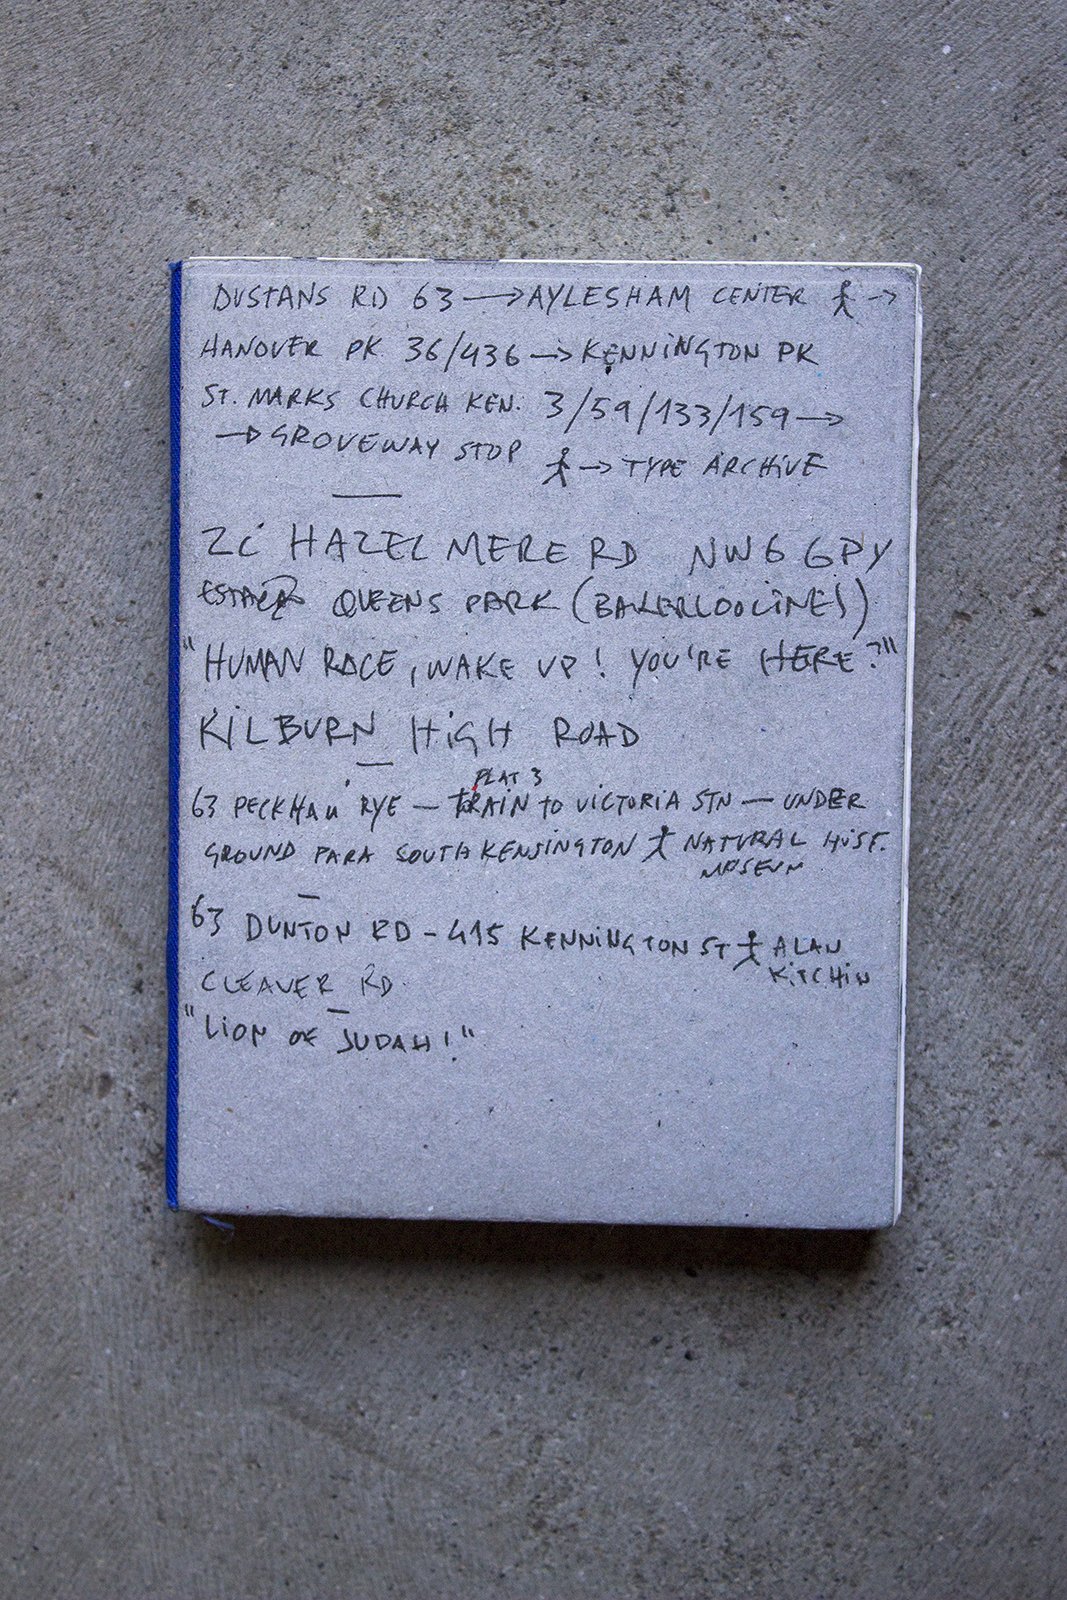 DUSTANS RD 63 → AYLESHAM CENTER →
HANOVER PK 36/436 → KENNINGTON PK
ST. MARKS CHURCH KEN. 3/59/133/159 →
→ GROVEWAY STOP → TYPE ARCHIVE
HAZELMERE RD NW6 6PY
QUEENS PARK (BAKERLOO LINES)
"HUMAN RACE, WAKE UP! YOU'RE HERE?"
KILBURN HIGH ROAD
PLAT 3
63 PECKHAM RYE — TRAIN TO VICTORIA STN — UNDER
GROUND PARA SOUTH KENSINGTON NATURAL HIST.
MUSEUM
63 DUNTON RD - 415 KENNINGTON ST ALAN
KITCHIN
CLEAVER RD
"LION OF JUDAH!"